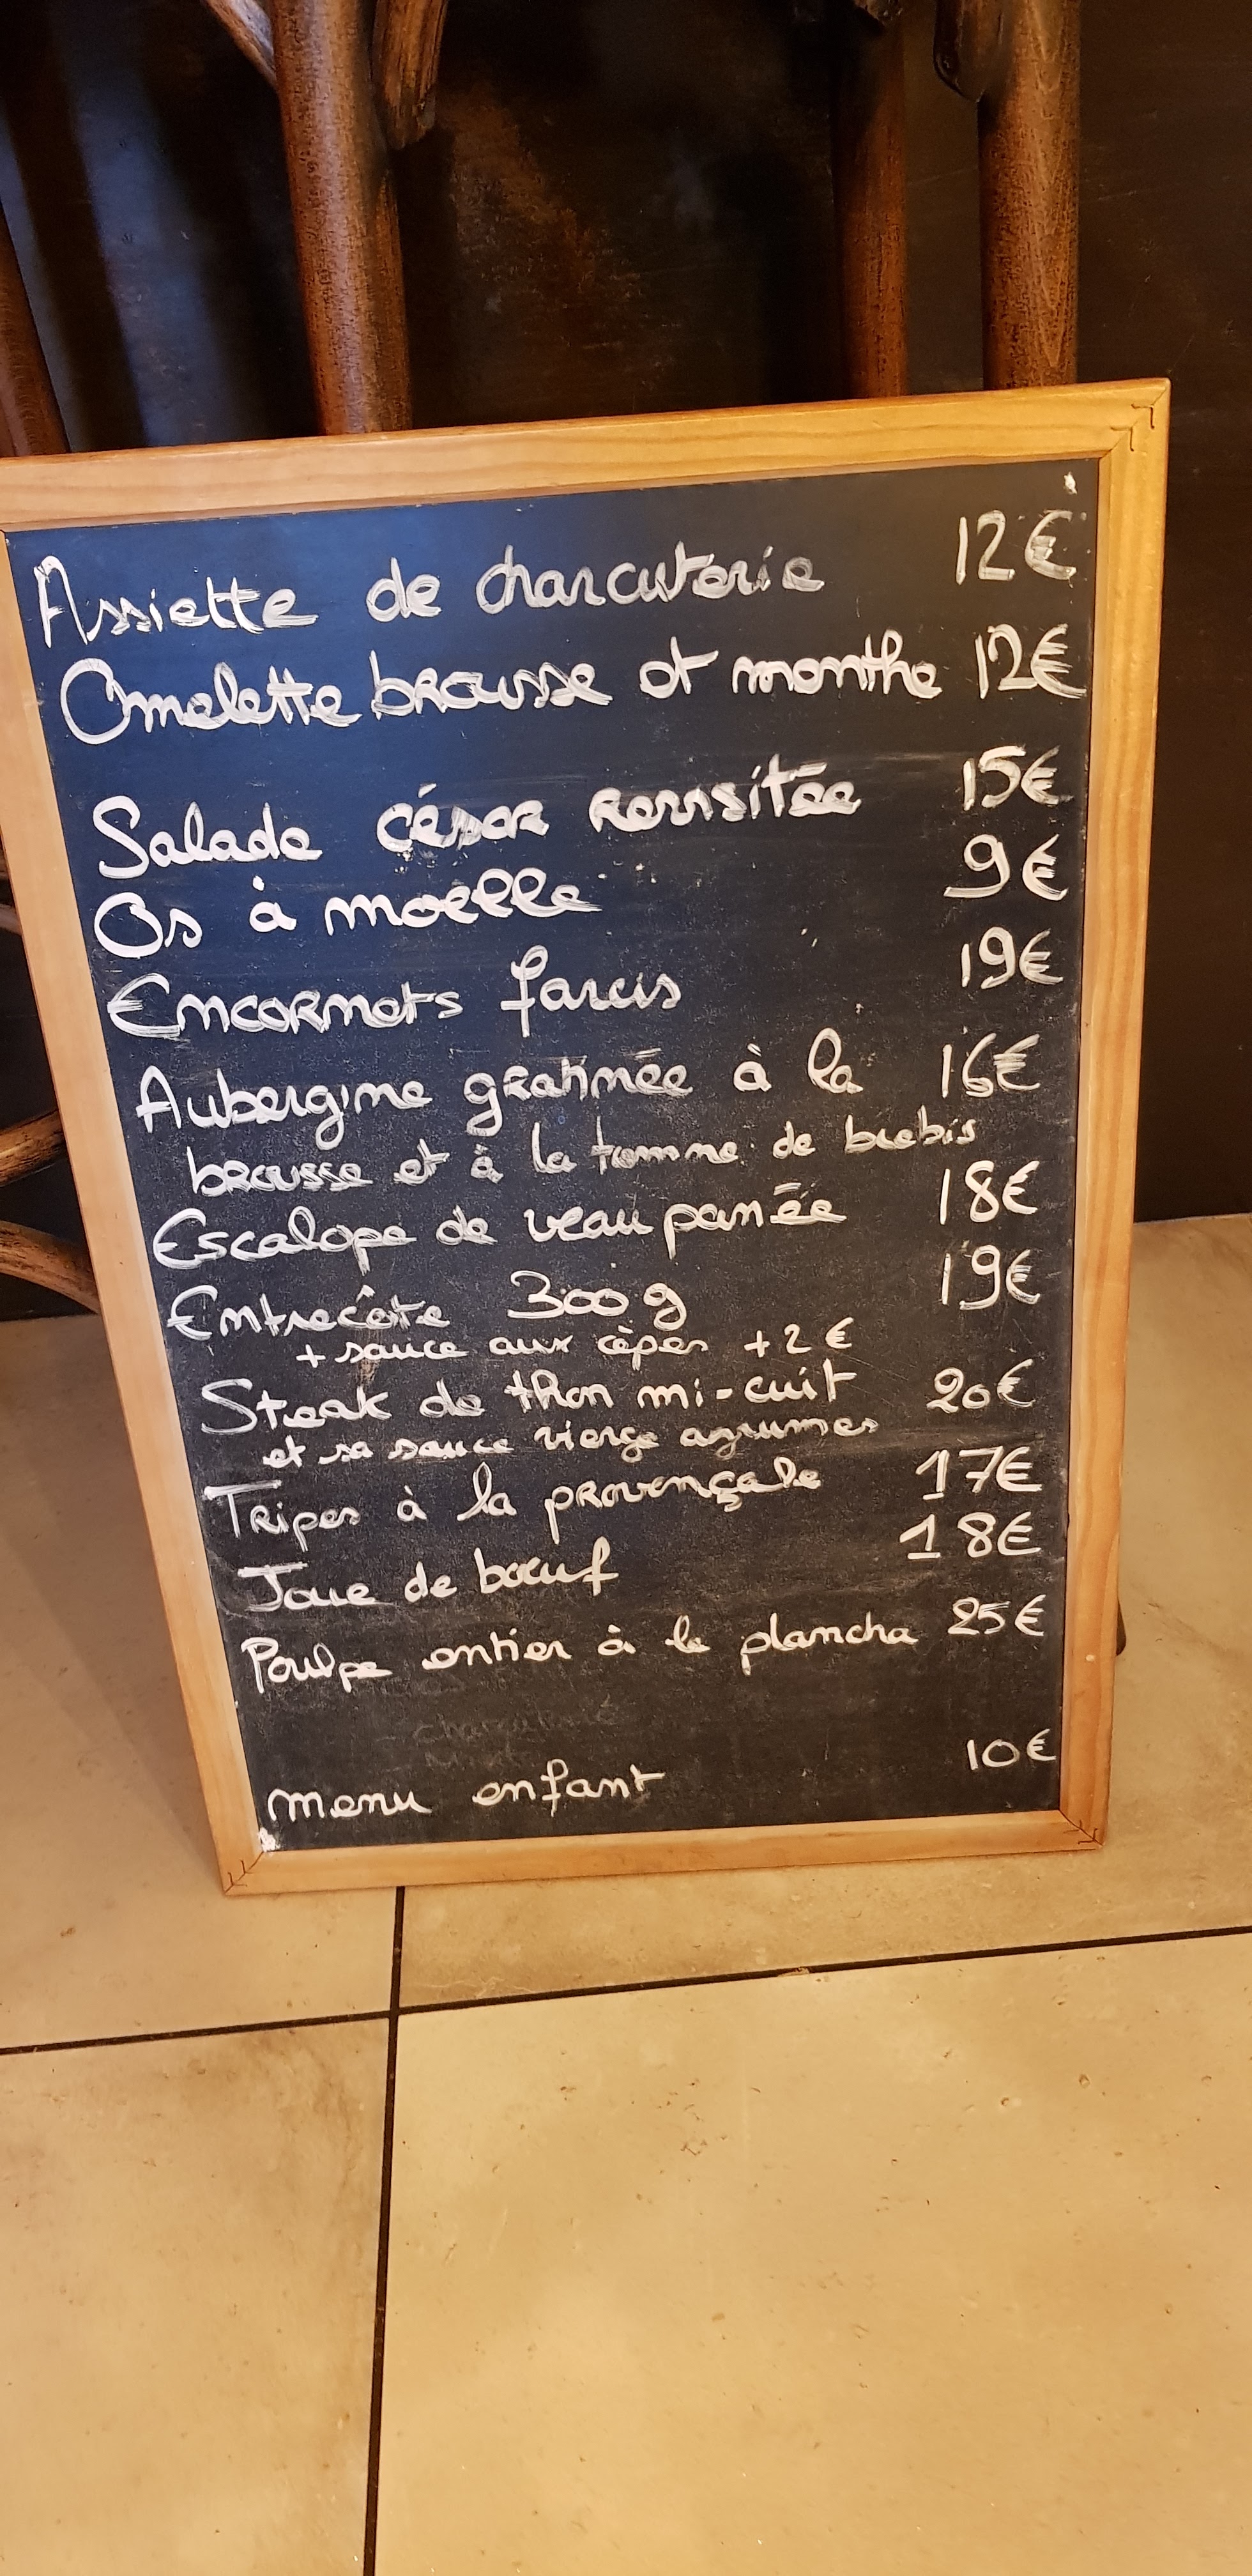 Assiette de charcuterie 12€
Omelette brousse et menthe 12€
Salade césar revisitée 15€
Os à moelle 9€
Encornets farcis 19€
Aubergine gratinée à la 16€
brousse et à la tomme de brebis
Escalope de veau panée 18€
Entrecôte 300 g 19€
+ sauce aux cèpes +2€
Steak de thon mi-cuit 20€
et sa sauce vierge agrumes
Tripes à la provençale 17€
Joue de boeuf 18€
Poulpe entier à la plancha 25€
menu enfant 10€